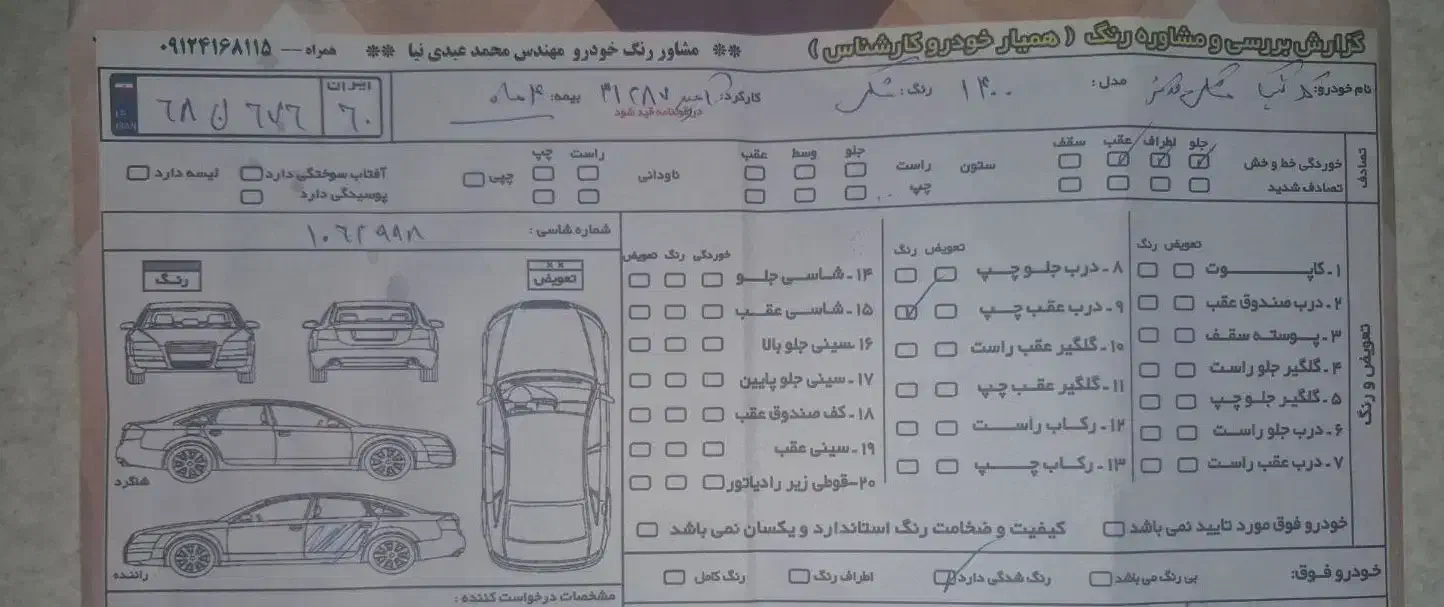 گزارش بررسی و مشاوره رنگ ( همیار خودرو کارشناس )
** مشاور رنگ خودرو مهندس محمد عبدی نیا ** همراه — ۰۹۱۲۴۱۶۸۱۱۵
نام خودرو: مدل: ۱۴۰۰ رنگ: مشکی کارکرد: ۳۱۲۸۷ بیمه: ۴ ماه
در قولنامه قید شود
ایران ۶۰ ۶۷۶ ن ۶۸
تصادف
جلو اطراف عقب سقف
خوردگی خط و خش
تصادف شدید
ستون راست چپ
جلو وسط عقب
ناودانی
راست چپ
چپی
آفتاب سوختگی دارد
لیسه دارد
پوسیدگی دارد
شماره شاسی: ۱۰۶۲۹۹۸
تعویض و رنگ
تعویض رنگ
۱ـ کاپوت
۲ـ درب صندوق عقب
۳ـ پوسته سقف
۴ـ گلگیر جلو راست
۵ـ گلگیر جلو چپ
۶ـ درب جلو راست
۷ـ درب عقب راست
تعویض رنگ
۸ـ درب جلو چپ
۹ـ درب عقب چپ
۱۰ـ گلگیر عقب راست
۱۱ـ گلگیر عقب چپ
۱۲ـ رکاب راست
۱۳ـ رکاب چپ
خوردگی رنگ تعویض
۱۴ـ شاسی جلو
۱۵ـ شاسی عقب
۱۶ـ سینی جلو بالا
۱۷ـ سینی جلو پایین
۱۸ـ کف صندوق عقب
۱۹ـ سینی عقب
۲۰ـ قوطی زیر رادیاتور
× × تعویض
رنگ
شاگرد
راننده
خودرو فوق مورد تایید نمی باشد
کیفیت و ضخامت رنگ استاندارد و یکسان نمی باشد
خودرو فوق: بی رنگ می باشد رنگ شدگی دارد اطراف رنگ رنگ کامل
مشخصات درخواست کننده: